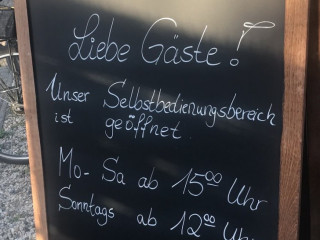 Liebe Gäste!
Unser Selbstbedienungsbereich
ist geöffnet
Mo- Sa ab 15⁰⁰ Uhr
Sonntags ab 12⁰⁰ Uhr